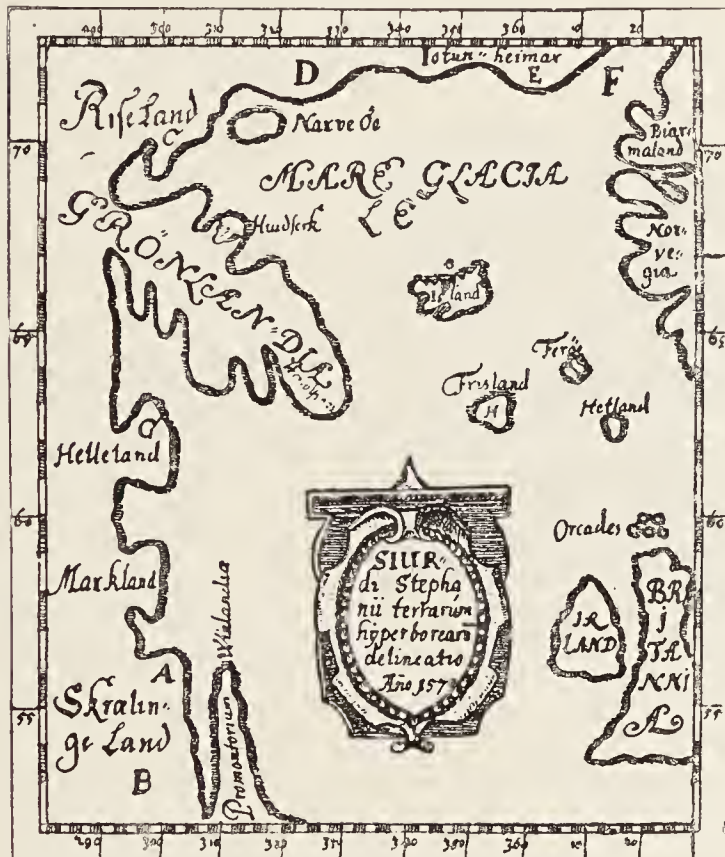 290 300 310 320 330 340 350 360 10 20
Jotun-heimar
D
E
F
Riseland
C
Narve Öe
Biar-
maland
70
70
MARE GLACIA
LE
GRÖNLAN-DIA
Huidserk
Nor-
ve-
gia
Island
65
65
Feröe
Frisland
H
Hetland
G
Helleland
60
60
Orcades
SIUR-
di Stepha
nii terrarum
hyperborearū
delineatio
Año 157
Markland
Promontorium Winlandiæ
IR
LAND
BRI
TA
NNI
A
A
Skrælin-
ge Land
55
55
B
290 300 310 320 330 340 350 360 10 20